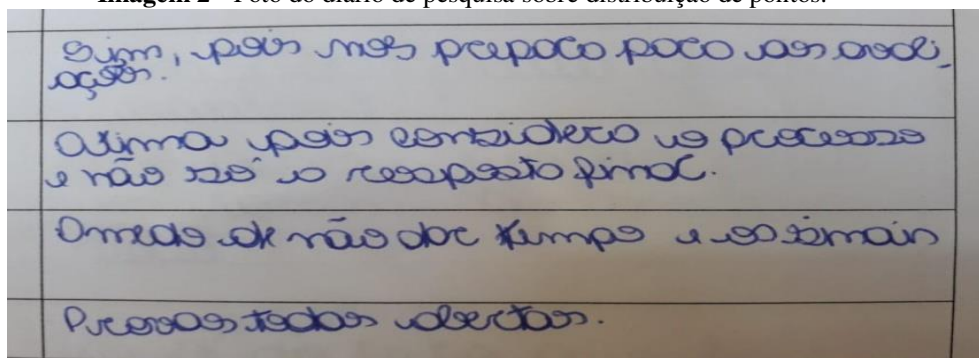 Imagem 2 - Foto do diário de pesquisa sobre distribuição de pontos.
Sim, pois nos prepara para as avali-
ações.
Otima pois considera o processo
e não só a resposta final.
O medo de não dar tempo e os sinais
Provas todas abertas.